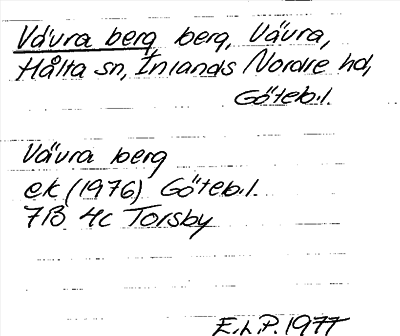 Vävra berg berg, Vävra,
Hålta sn, Inlands Nordre hd,
Göteb.l.
Vävra berg
ek (1976) Göteb.l.
7B 4c Torsby
E.h.P. 1977